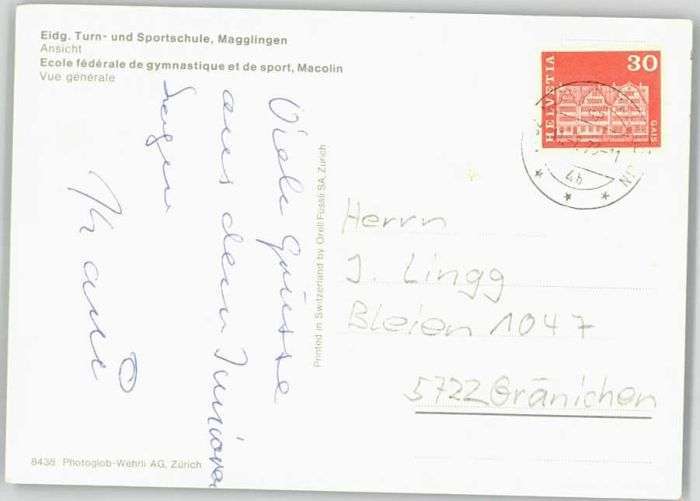 Eidg. Turn- und Sportschule, Magglingen
Ansicht
Ecole fédérale de gymnastique et de sport, Macolin
Vue générale
Viele Grüsse
aus dem Juniora
Printed in Switzerland by Orell Füssli SA, Zürich
HELVETIA
30
GAIS
Herrn
J. Lingg
Bleien 1047
5722 Gränichen
8438 Photoglob-Wehrli AG, Zürich